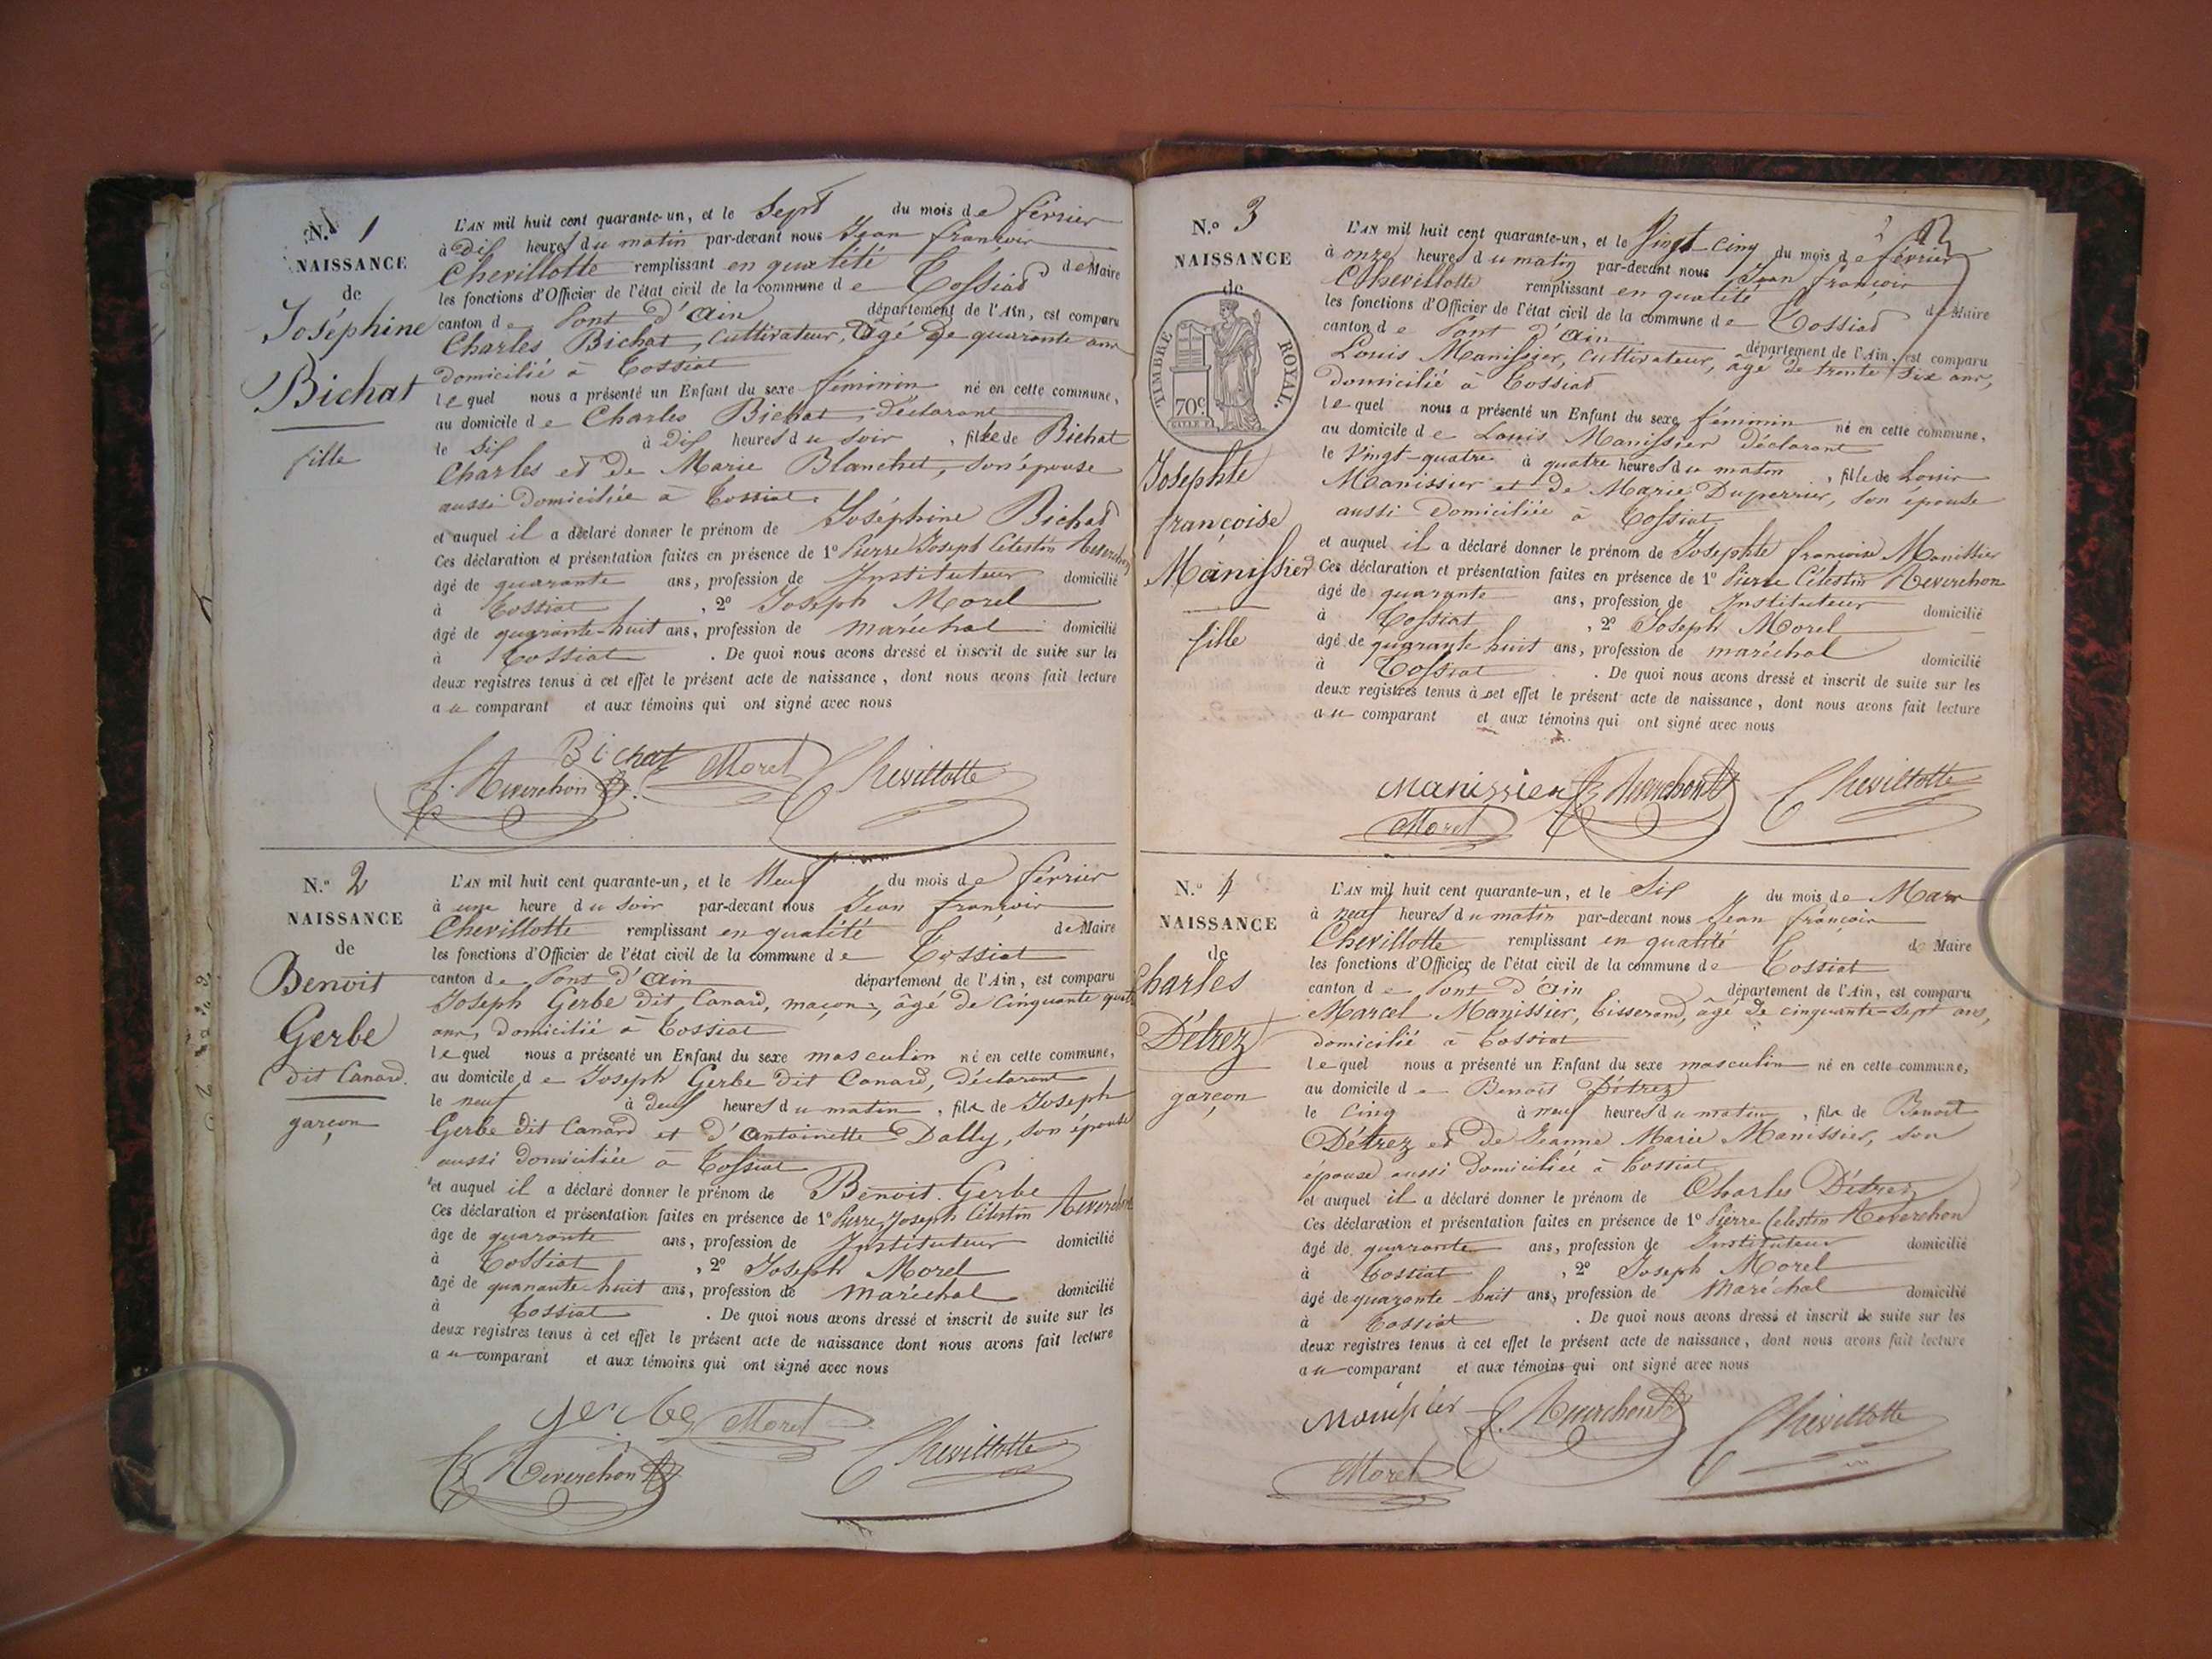 N.º 1
NAISSANCE
de
Joséphine
Bichat
fille
L'AN mil huit cent quarante-un, et le Sept du mois de février
à Dix heures du matin par-devant nous Jean françois
Chevillotte remplissant en qualité de Maire
les fonctions d'Officier de l'état civil de la commune de Tossiat
canton de Pont d'Ain département de l'Ain, est comparu
Charles Bichat, cultivateur, âgé de quarante ans
domicilié à Tossiat
lequel nous a présenté un Enfant du sexe féminin né en cette commune,
au domicile de Charles Bichat, déclarant
le Six à Dix heures du soir, fille de Bichat
Charles et de Marie Blanchet, son épouse
aussi domiciliée à Tossiat
et auquel il a déclaré donner le prénom de Joséphine Bichat
Ces déclaration et présentation faites en présence de 1º Pierre Joseph Célestin Reverchon
âgé de quarante ans, profession de Instituteur domicilié
à Tossiat, 2º Joseph Morel
âgé de quarante-huit ans, profession de maréchal domicilié
à Tossiat. De quoi nous avons dressé et inscrit de suite sur les
deux registres tenus à cet effet le présent acte de naissance, dont nous avons fait lecture
au comparant et aux témoins qui ont signé avec nous
Bichat Morel Chevillotte
Reverchon
N.º 2
NAISSANCE
de
Benoit
Gerbe
dit Canard.
garçon
L'AN mil huit cent quarante-un, et le Neuf du mois de février
à une heure du soir par-devant nous Jean françois
Chevillotte remplissant en qualité de Maire
les fonctions d'Officier de l'état civil de la commune de Tossiat
canton de Pont d'Ain département de l'Ain, est comparu
Joseph Gerbe dit Canard, maçon, âgé de cinquante quatre
ans, domicilié à Tossiat
lequel nous a présenté un Enfant du sexe masculin né en cette commune,
au domicile de Joseph Gerbe dit Canard, déclarant
le neuf à deux heures du matin, fils de Joseph
Gerbe dit Canard et d'Antoinette Dally, son épouse
aussi domiciliée à Tossiat
et auquel il a déclaré donner le prénom de Benoit Gerbe
Ces déclaration et présentation faites en présence de 1º Pierre Joseph Célestin Reverchon
âgé de quarante ans, profession de Instituteur domicilié
à Tossiat, 2º Joseph Morel
âgé de quarante-huit ans, profession de maréchal domicilié
à Tossiat. De quoi nous avons dressé et inscrit de suite sur les
deux registres tenus à cet effet le présent acte de naissance dont nous avons fait lecture
au comparant et aux témoins qui ont signé avec nous
Gerbe Morel
Reverchon Chevillotte
N.º 3
NAISSANCE
de
TIMBRE ROYAL.
70c.
Josephte
françoise
Manissier
fille
2
L'AN mil huit cent quarante-un, et le Vingt-cinq du mois de février
à onze heures du matin par-devant nous Jean françois
Chevillotte remplissant en qualité de Maire
les fonctions d'Officier de l'état civil de la commune de Tossiat
canton de Pont d'ain département de l'Ain, est comparu
Louis Manissier, cultivateur, âgé de trente six ans,
domicilié à Tossiat
lequel nous a présenté un Enfant du sexe féminin né en cette commune,
au domicile de Louis Manissier déclarant
le Vingt-quatre à quatre heures du matin, fille de Louis
Manissier et de Marie Duperrier, son épouse
aussi domiciliée à Tossiat
et auquel il a déclaré donner le prénom de Josephte françoise Manissier
Ces déclaration et présentation faites en présence de 1º Pierre Célestin Reverchon
âgé de quarante ans, profession de Instituteur domicilié
à Tossiat, 2º Joseph Morel
âgé de quarante huit ans, profession de maréchal domicilié
à Tossiat. De quoi nous avons dressé et inscrit de suite sur les
deux registres tenus à cet effet le présent acte de naissance, dont nous avons fait lecture
au comparant et aux témoins qui ont signé avec nous
Manissier Reverchon Chevillotte
Morel
N.º 4
NAISSANCE
de
Charles
Détrez
garçon
L'AN mil huit cent quarante-un, et le Six du mois de Mars
à neuf heures du matin par-devant nous Jean françois
Chevillotte remplissant en qualité de Maire
les fonctions d'Officier de l'état civil de la commune de Tossiat
canton de Pont d'Ain département de l'Ain, est comparu
Marcel Manissier, tisserand, âgé de cinquante-sept ans,
domicilié à Tossiat
lequel nous a présenté un Enfant du sexe masculin né en cette commune,
au domicile de Benoit Détrez
le cinq à neuf heures du matin, fils de Benoit
Détrez et de Jeanne Marie Manissier, son
épouse aussi domiciliée à Tossiat
et auquel il a déclaré donner le prénom de Charles Détrez
Ces déclaration et présentation faites en présence de 1º Pierre Celestin Reverchon
âgé de quarante ans, profession de Instituteur domicilié
à Tossiat, 2º Joseph Morel
âgé de quarante huit ans, profession de Maréchal domicilié
à Tossiat. De quoi nous avons dressé et inscrit de suite sur les
deux registres tenus à cet effet le présent acte de naissance, dont nous avons fait lecture
au comparant et aux témoins qui ont signé avec nous
Manissier Reverchon Chevillotte
Morel